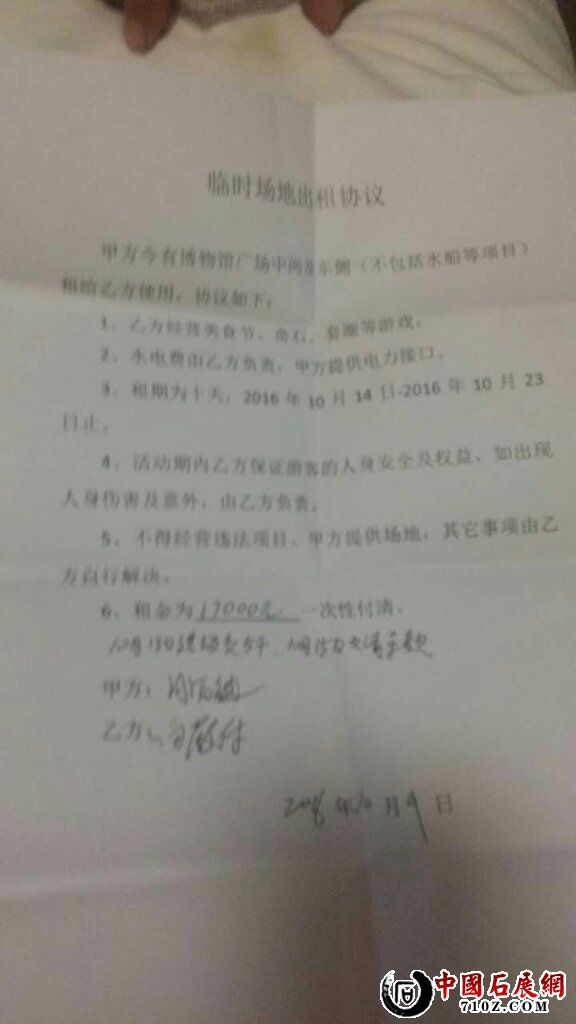 临时场地出租协议
甲方今有博物馆广场中间及东侧（不包括水船等项目）
租给乙方使用，协议如下：
1、乙方经营美食节、奇石、套圈等游戏。
2、水电费由乙方负责，甲方提供电力接口。
3、租期为十天，2016年10月14日-2016年10月23
日止。
4、活动期内乙方保证游客的人身安全及权益，如出现
人身伤害及意外，由乙方负责。
5、不得经营违法项目。甲方提供场地，其它事项由乙
方自行解决。
6、租金为17000元 一次性付清。
10月13日进场
甲方：
乙方：
2016年10月9日
中國石展網
7102.COM